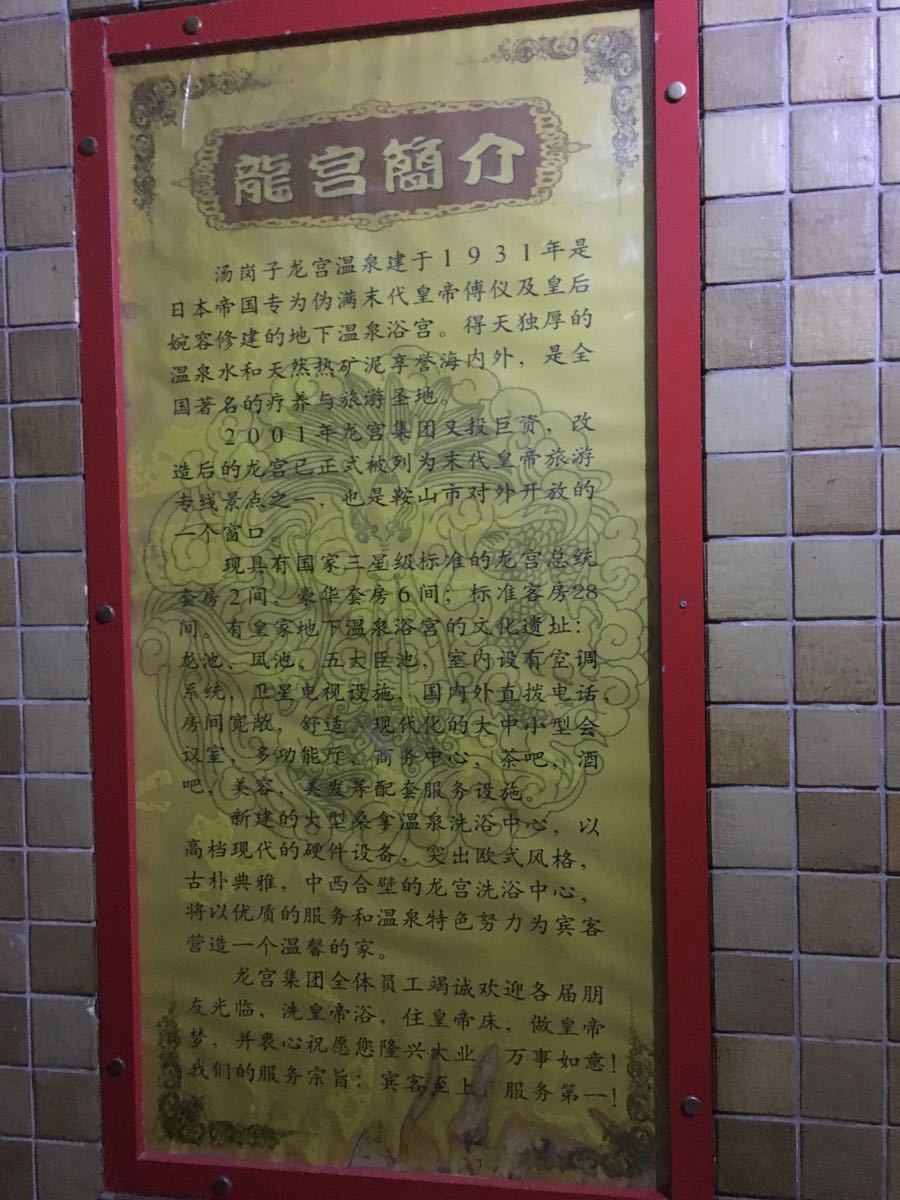 龍宫簡介
汤岗子龙宫温泉建于1931年是
日本帝国专为伪满末代皇帝傅仪及皇后
婉容修建的地下温泉浴宫。得天独厚的
温泉水和天然热矿泥享誉海内外，是全
国著名的疗养与旅游圣地。
2001年龙宫集团又投巨资，改
造后的龙宫已正式被列为末代皇帝旅游
专线景点之一，也是鞍山市对外开放的
一个窗口。
现具有国家三星级标准的龙宫总统
套房2间，豪华套房6间；标准客房28
间。有皇家地下温泉浴宫的文化遗址：
龙池、凤池、五大臣池，室内设有空调
系统，卫星电视设施，国内外直拨电话，
房间宽敞，舒适，现代化的大中小型会
议室，多功能厅，商务中心，茶吧，酒
吧，美容，美发等配套服务设施。
新建的大型桑拿温泉洗浴中心，以
高档现代的硬件设备，突出欧式风格，
古朴典雅，中西合壁的龙宫洗浴中心，
将以优质的服务和温泉特色努力为宾客
营造一个温馨的家。
龙宫集团全体员工竭诚欢迎各届朋
友光临，洗皇帝浴，住皇帝床，做皇帝
梦，并衷心祝愿您隆兴大业，万事如意！
我们的服务宗旨：宾客至上，服务第一！